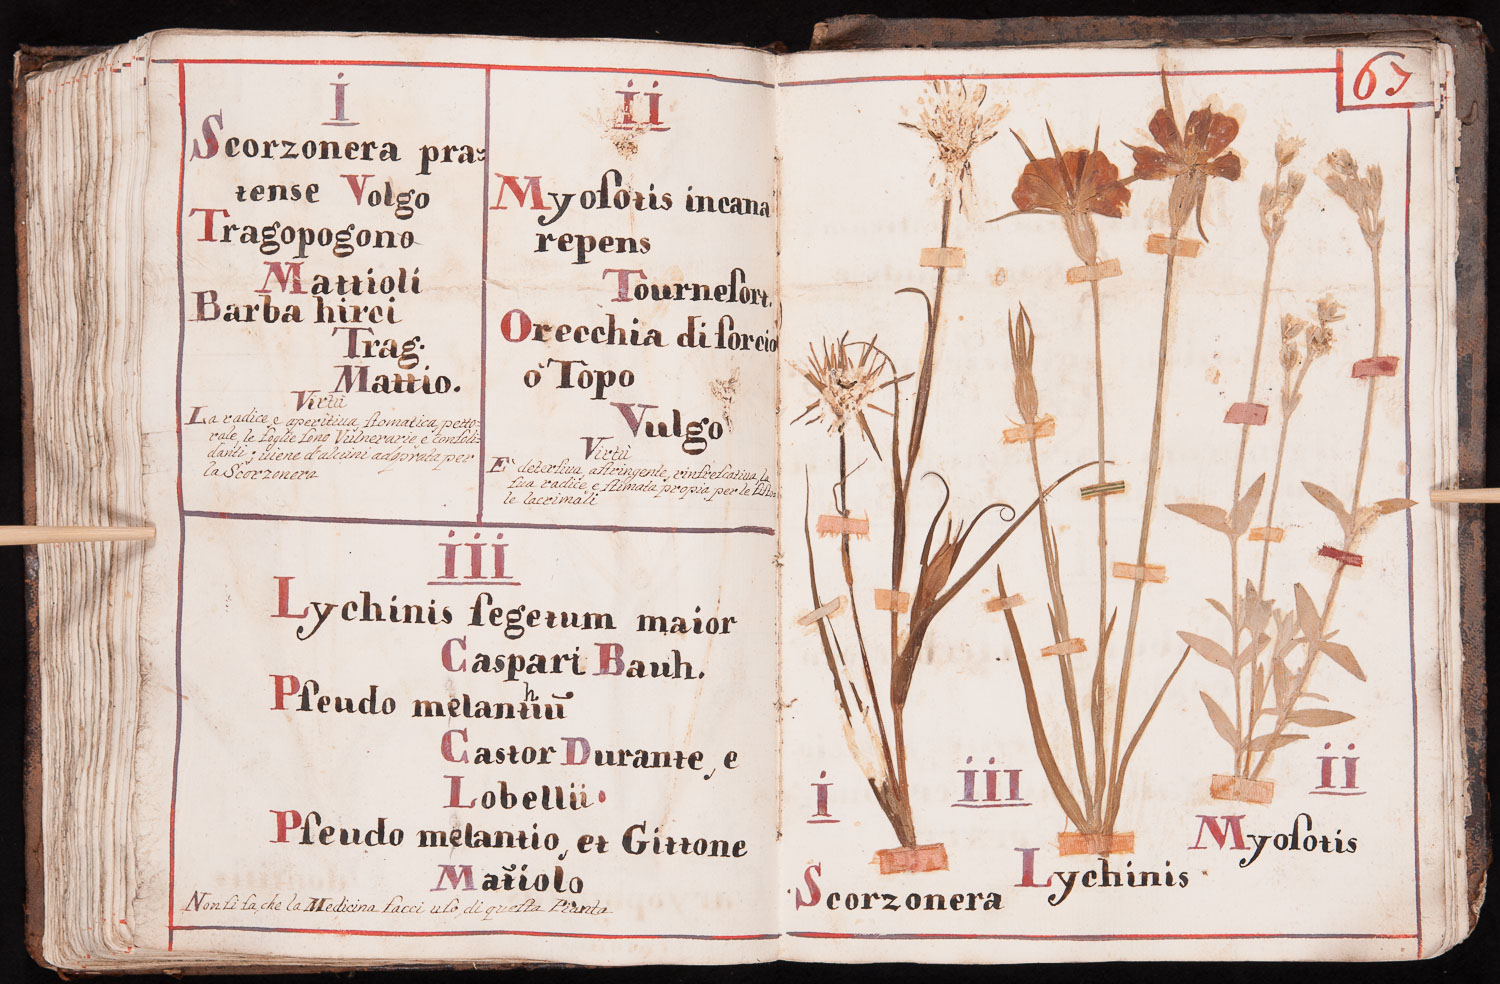 i
Scorzonera pra=
tense Volgo
Tragopogono
Mattioli
Barba hirci
Trag.
Mattio.
Virtù
La radice e aperitiua, stomatica, petto-
rale, le foglie sono Vulnerarie, e consoli-
danti; uiene d'alcuni adoprata per
la Scorzonera
ii
Myosotis incana
repens
Tournefort.
Orecchia di sorcio
ò Topo
Vulgo
Virtù
E' detersiua, astringente, rinfrescatiua, la
sua radice, e stimata propia per le fisto-
le lacrimali
iii
Lychinis segetum maior
Caspari Bauh.
Pseudo melanthiū
Castor Durante, e
Lobellii.
Pseudo melantio, et Gittone
Mattiolo
Non si sa, che la Medicina facci uso, di questa Pianta
67
i
iii
ii
Myosotis
Lychinis
Scorzonera